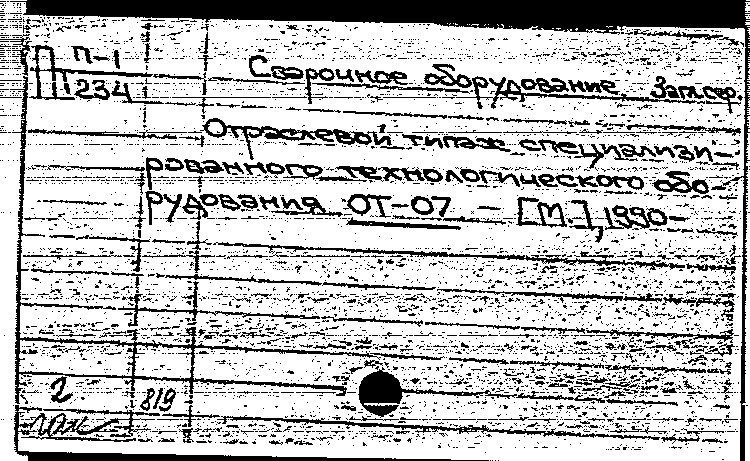 П П-1
П1234
Сварочное оборудование. Загл.сер.
Отраслевой типаж специализи-
рованного технологического обо-
рудования ОТ-07 — [М.], 1990-
2
819